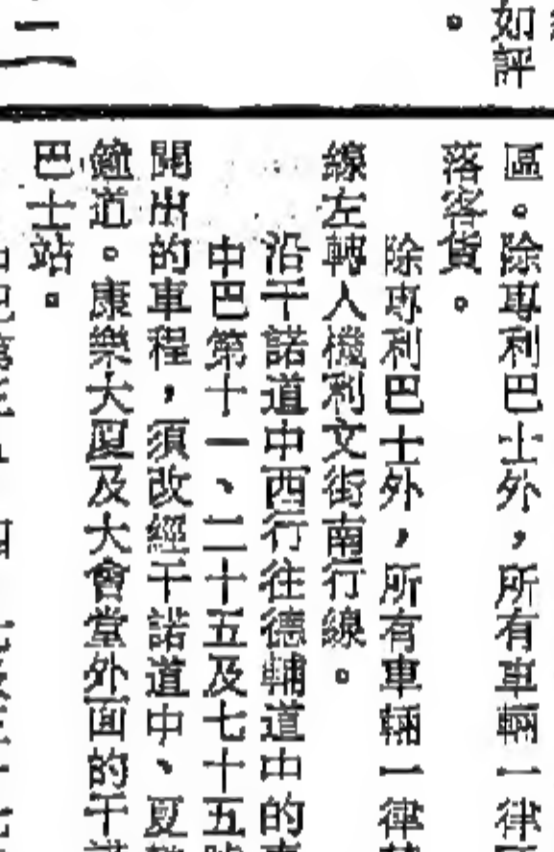 如評
。
區。除專利巴士外，所有車輛一律
落客貨。
除專利巴士外，所有車輛一律
線左轉入機利文街南行線。
沿干諾道中西行往德輔道中的
中巴第十一、二十五及七十五號
開出的車程，須改經干諾道中、夏
鐘道。康樂大厦及大會堂外面的干諾
巴士站。
二